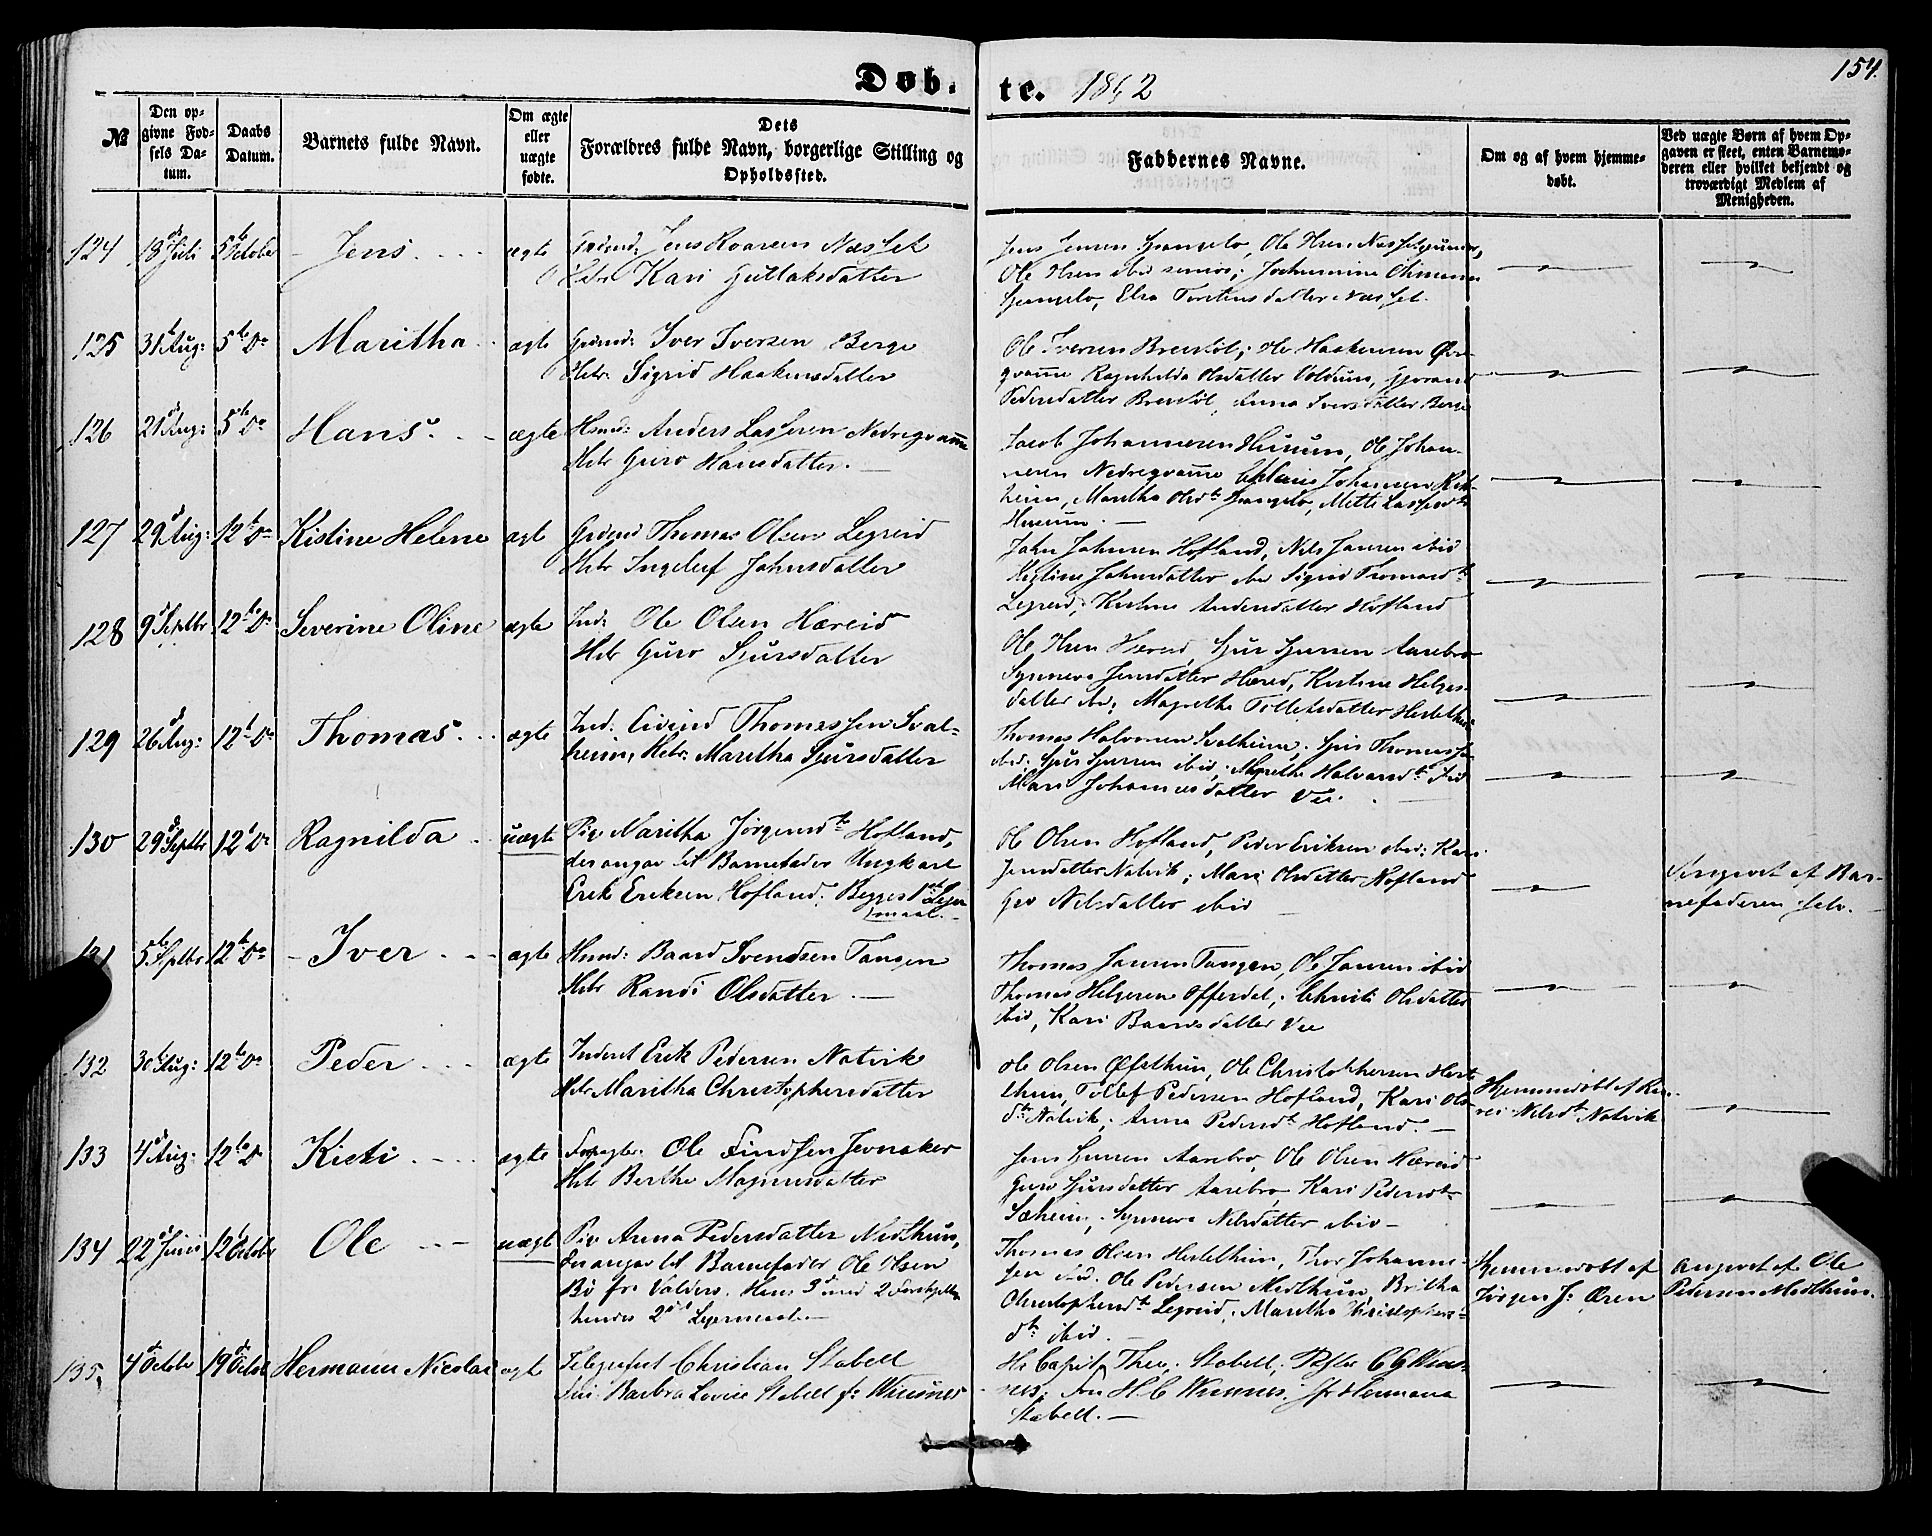 154.
Døb- te. 1862
№
Den opgivne Fødsels Datum.
Daabs Datum.
Barnets fulde Navn.
Om ægte eller uægte fødte.
Dets Forældres fulde Navn, borgerlige Stilling og Opholdssted.
Faddernes Navne.
Om og af hvem hjemmedøbt.
Ved uægte Børn af hvem Opgaven er skeet, enten Barnemoderen eller hvilket bekjendt og troværdigt Medlem af Menigheden.
124 18de Juli 5te October Jens ægte Jens Roarsen Næsset
Hstr Kari Gullaksdatter
Jens Jensen Ljangelo, Ole Olsen Næsset junior,
Ole Olsen ibid senior;
Ljangelo, Elsa Torstensdatter Næsset.
125 31te Aug: 5te Do Maritha ægte Grdmd: Iver Iversen Berge
Hstr. Sigrid Haakensdatter
Ole Iversen Brevøl; Ole Haakensen Øvregvamme Ragnhilda Olsdatter Voldum,
Pedersdatter Brevøl, Anna Iversdatter Berge
126 21de Aug: 5te Do Hans. ægte Hsmd: Anders Lassesen Nedregvamme
Hstr Guro Hansdatter.
Jacob Johannesen Husum, Ole Johannesen Nedregvamme
Maritha Olsdtr Ljangelo, Mette Lassesdtr
Husum.
127 29de Aug: 12te Do Kistine Helene ægte Grdmd Thomas Olsen Legreid
Hstr Ingeleif Johnsdatter
John Johnsen Hofland, Nils Jansen ibid
Kistine Johnsdatter ibid Sigrid Thomasdtr
Legreid, Kistine Andersdatter Hofland
128 9de Septbr 12te Do Severine Oline ægte Ind: Ole Olsen Hæreid
Hstr Guro Sjursdatter
Ole Olsen Hæreid, Sjur Sjursen Aarebro
Synneva Jensdatter Hæreid, Kistine Helgesdatter ibid; Magretha Tollefsdatter
129 26de Aug: 12te Do Thomas. ægte Ind: Eivind Thomassen Svalheim, Hstr. Maritha Sjursdatter
Thomas Halvorsen Svalheim. Sjur Thomassen
ibid. Sjur Sjursen ibid; Halvorsdtr ibid
Mari Johannesdatter Vee.
130 29de Septbr 12te Do Ragnilda uægte Pige Maritha Jørgensdtr Hofland,
der angav til Barnefader Ungkarl
Erik Eriksen Hofland. Begges 1ste Leiermaal.
Ole Olsen Hofland, Peder Eriksen ibid; Kari
Jensdatter Natvik; Mari Olsdatter Hofland
Nilsdatter ibid
Angivet af Barnefaderen selv.
131 5te Septbr 12te Do Iver ægte Hsmd: Baard Svendsen Tangen
Hstr Randi Olsdatter.
Thomas Jansen Tangen, Ole Jansen ibid
Thomas Helgesen Offerdal; Christi Olsdatter
ibid, Kari Baardsdatter Vee
132 30te Aug: 12te Do Peder ægte Inderst Erik Pedersen Natvik
Hstr Maritha Christophersdatter
Ole Olsen Øfsthun, Ole Christophersen Hestethun, Tollef Pedersen Hofland, Kari Olsdtr Natvik; Anna Pedersdtr Hofland.
Hjemmedøbt af Nilsdtr Natvik
133 4de Aug: 12te Do Kisti ægte Forpagter: Ole Findsen Jevnaker
Hstr Berthe Magnusdatter
Jens Sjursen Aarebro, Ole Olsen Hæreid
Guro Sjursdatter Aarebro, Kari Pedersdtr
Sæheim; Synneva Nilsdatter ibid
134 22de Juni 12te October Ole uægte Pige Anna Pedersdatter Midthun,
der angav til Barnefader Ole Olsen
Bø fra Valders. Hans 3de med 2 Forskjellige,
hendes 2det Leiermaal.
Thomas Olsen Hestethun, Thor Johannessen ibid. Ole Pedersen Midthun, Britha
Christophersdtr Legreid, Maritha Christophersdtr ibid.
Hjemmedøbt af Jørgen J. Øren
Angivet af Ole Pedersen Midthun.
135. 4de October 19de Octobr Hermann Nicolai ægte Telegrafist Christian Stabell
Fru Barbra Lovise Stabell f: Wiesener
Hr. Capit. Theo. Stabell,
Fru H. C. Frk Hermana
Stabell.